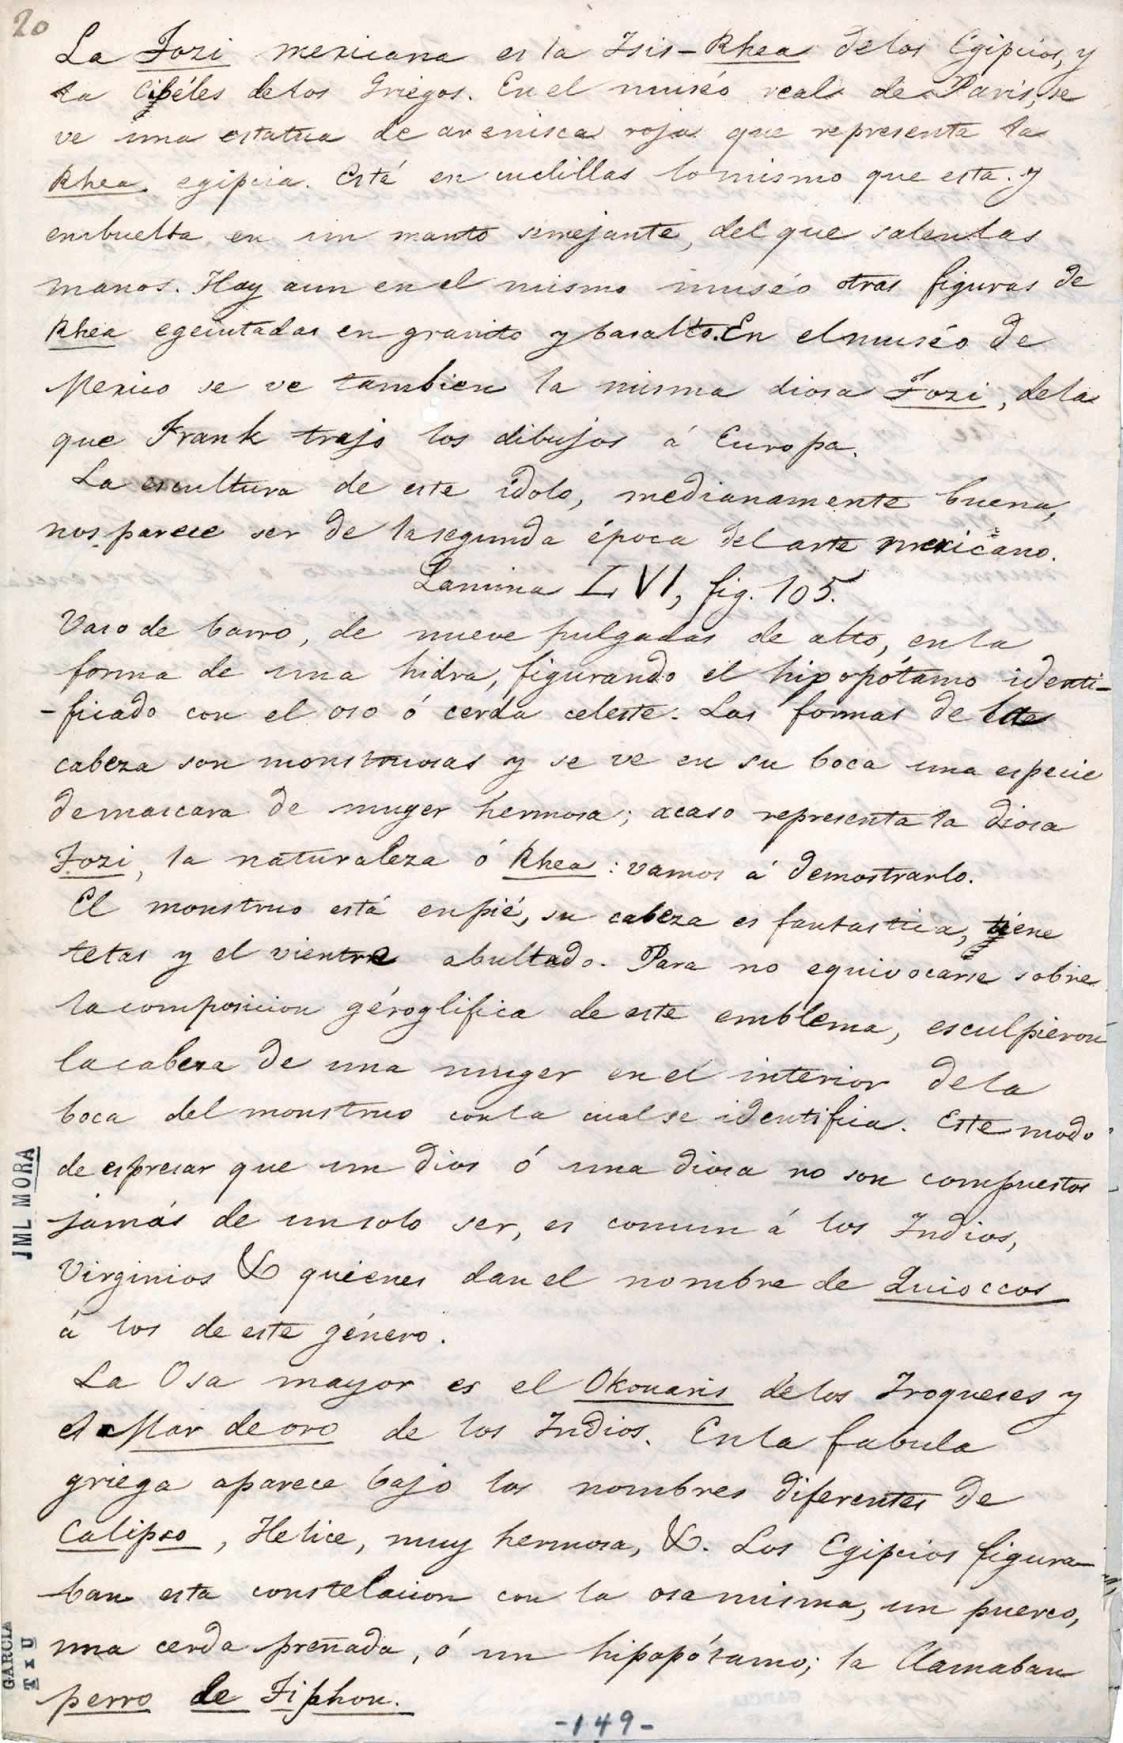 20
La Tozi mexicana es la Isis-Rhea de los Egipcios, y
la Cibéles de los Griegos. En el muséo real de Paris, se
ve una estatua de arenisca roja que representa la
Rhea egipcia. Está en cuclillas lo mismo que esta y
enbuelta en un manto semejante, del que salen las
manos. Hay aun en el mismo muséo otras figuras de
Rhea egecutadas en granito y basalto. En el muséo de
Mexico se ve tambien la misma diosa Tozi, de la
que Frank trajo los dibujos á Europa.
La escultura de este idolo, medianamente buena,
nos parece ser de la segunda época del arte mexicano.
Lamina LVI, fig. 105.
Vaso de barro, de nueve pulgadas de alto, en la
forma de una hidra, figurando el hipopótamo identi-
-ficado con el oso ó cerda celeste. Las formas de
cabeza son monstruosas y se ve en su boca una especie
de mascara de muger hermosa; acaso representa la diosa
Tozi, la naturaleza ó Rhea: vamos á demostrarlo.
El monstruo está en pié, su cabeza es fantastica, tiene
tetas y el vientre abultado. Para no equivocarse sobre
la composicion géroglifica de este emblema, esculpieron
la cabeza de una muger en el interior de la
boca del monstruo con la cual se identifica. Este modo
de espresar que un dios ó una diosa no son compuestos
jamás de un solo ser, es comun á los Indios,
Virginios & quienes dan el nombre de Quioccos
á los de este género.
La Osa mayor es el Okouaris de los Iroqueses y
el Mar de oro de los Indios. En la fabula
griega aparece bajo los nombres diferentes de
Calipso, Helice, muy hermosa, &. Los Egipcios figura-
ban esta constelacion con la osa misma, un puerco,
una cerda preñada, ó un hipopótamo; la llamaban
perro de Tiphon.
-149-
JML MORA
GARCIA